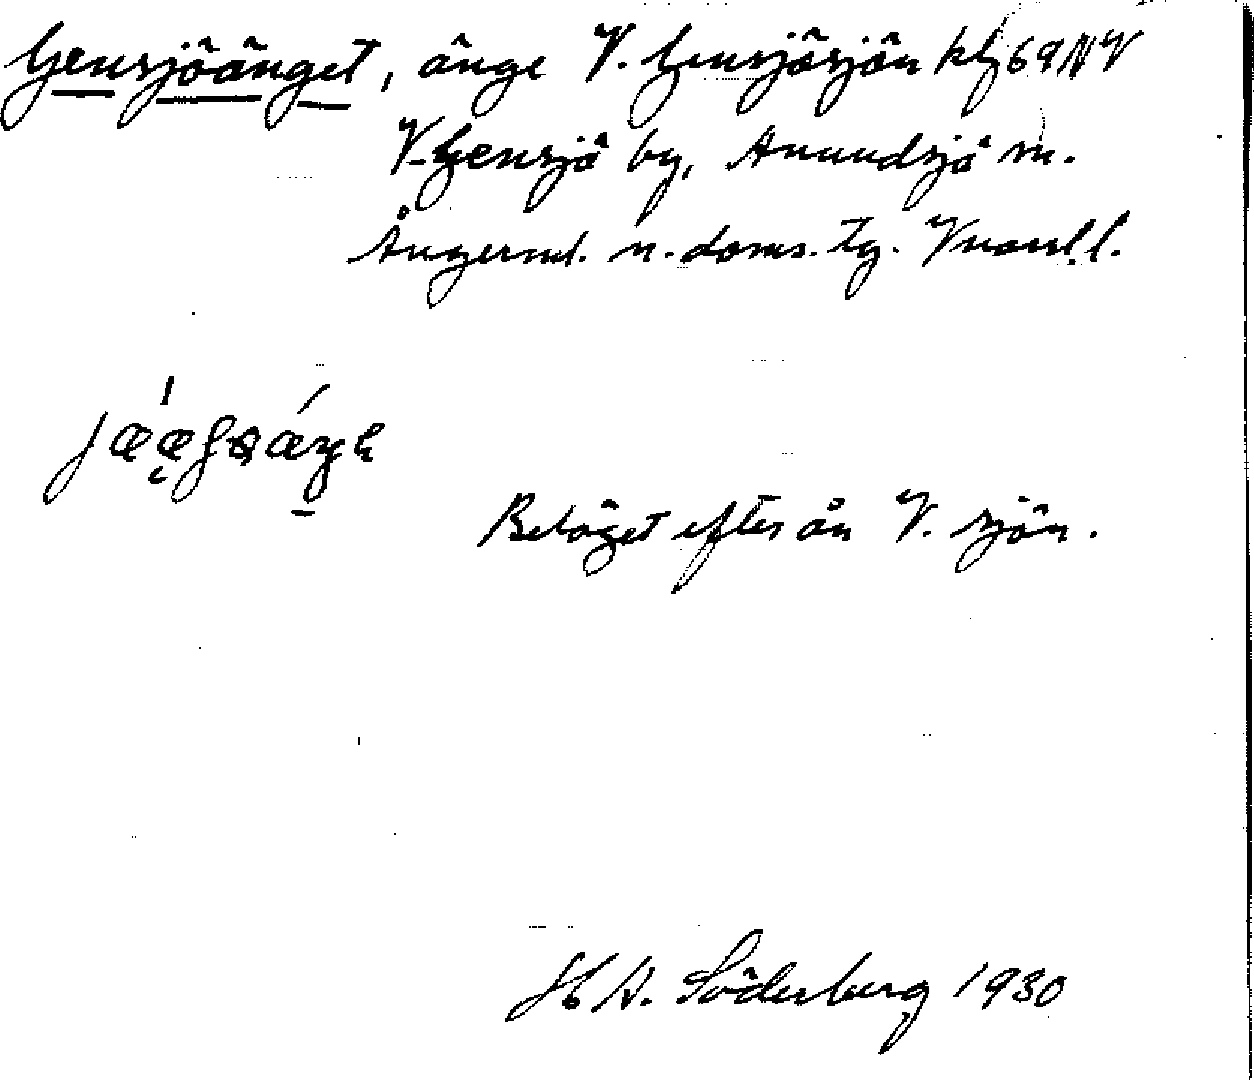 Gensjöänget, änge V. Gensjösjön kbl 69 NV
V. Gensjö by, Anundsjö sn.
Ångerml. n. doms. tg. Vnorrl. l.
Beläget efter ån V. sjön.
H A. Söderberg 1930